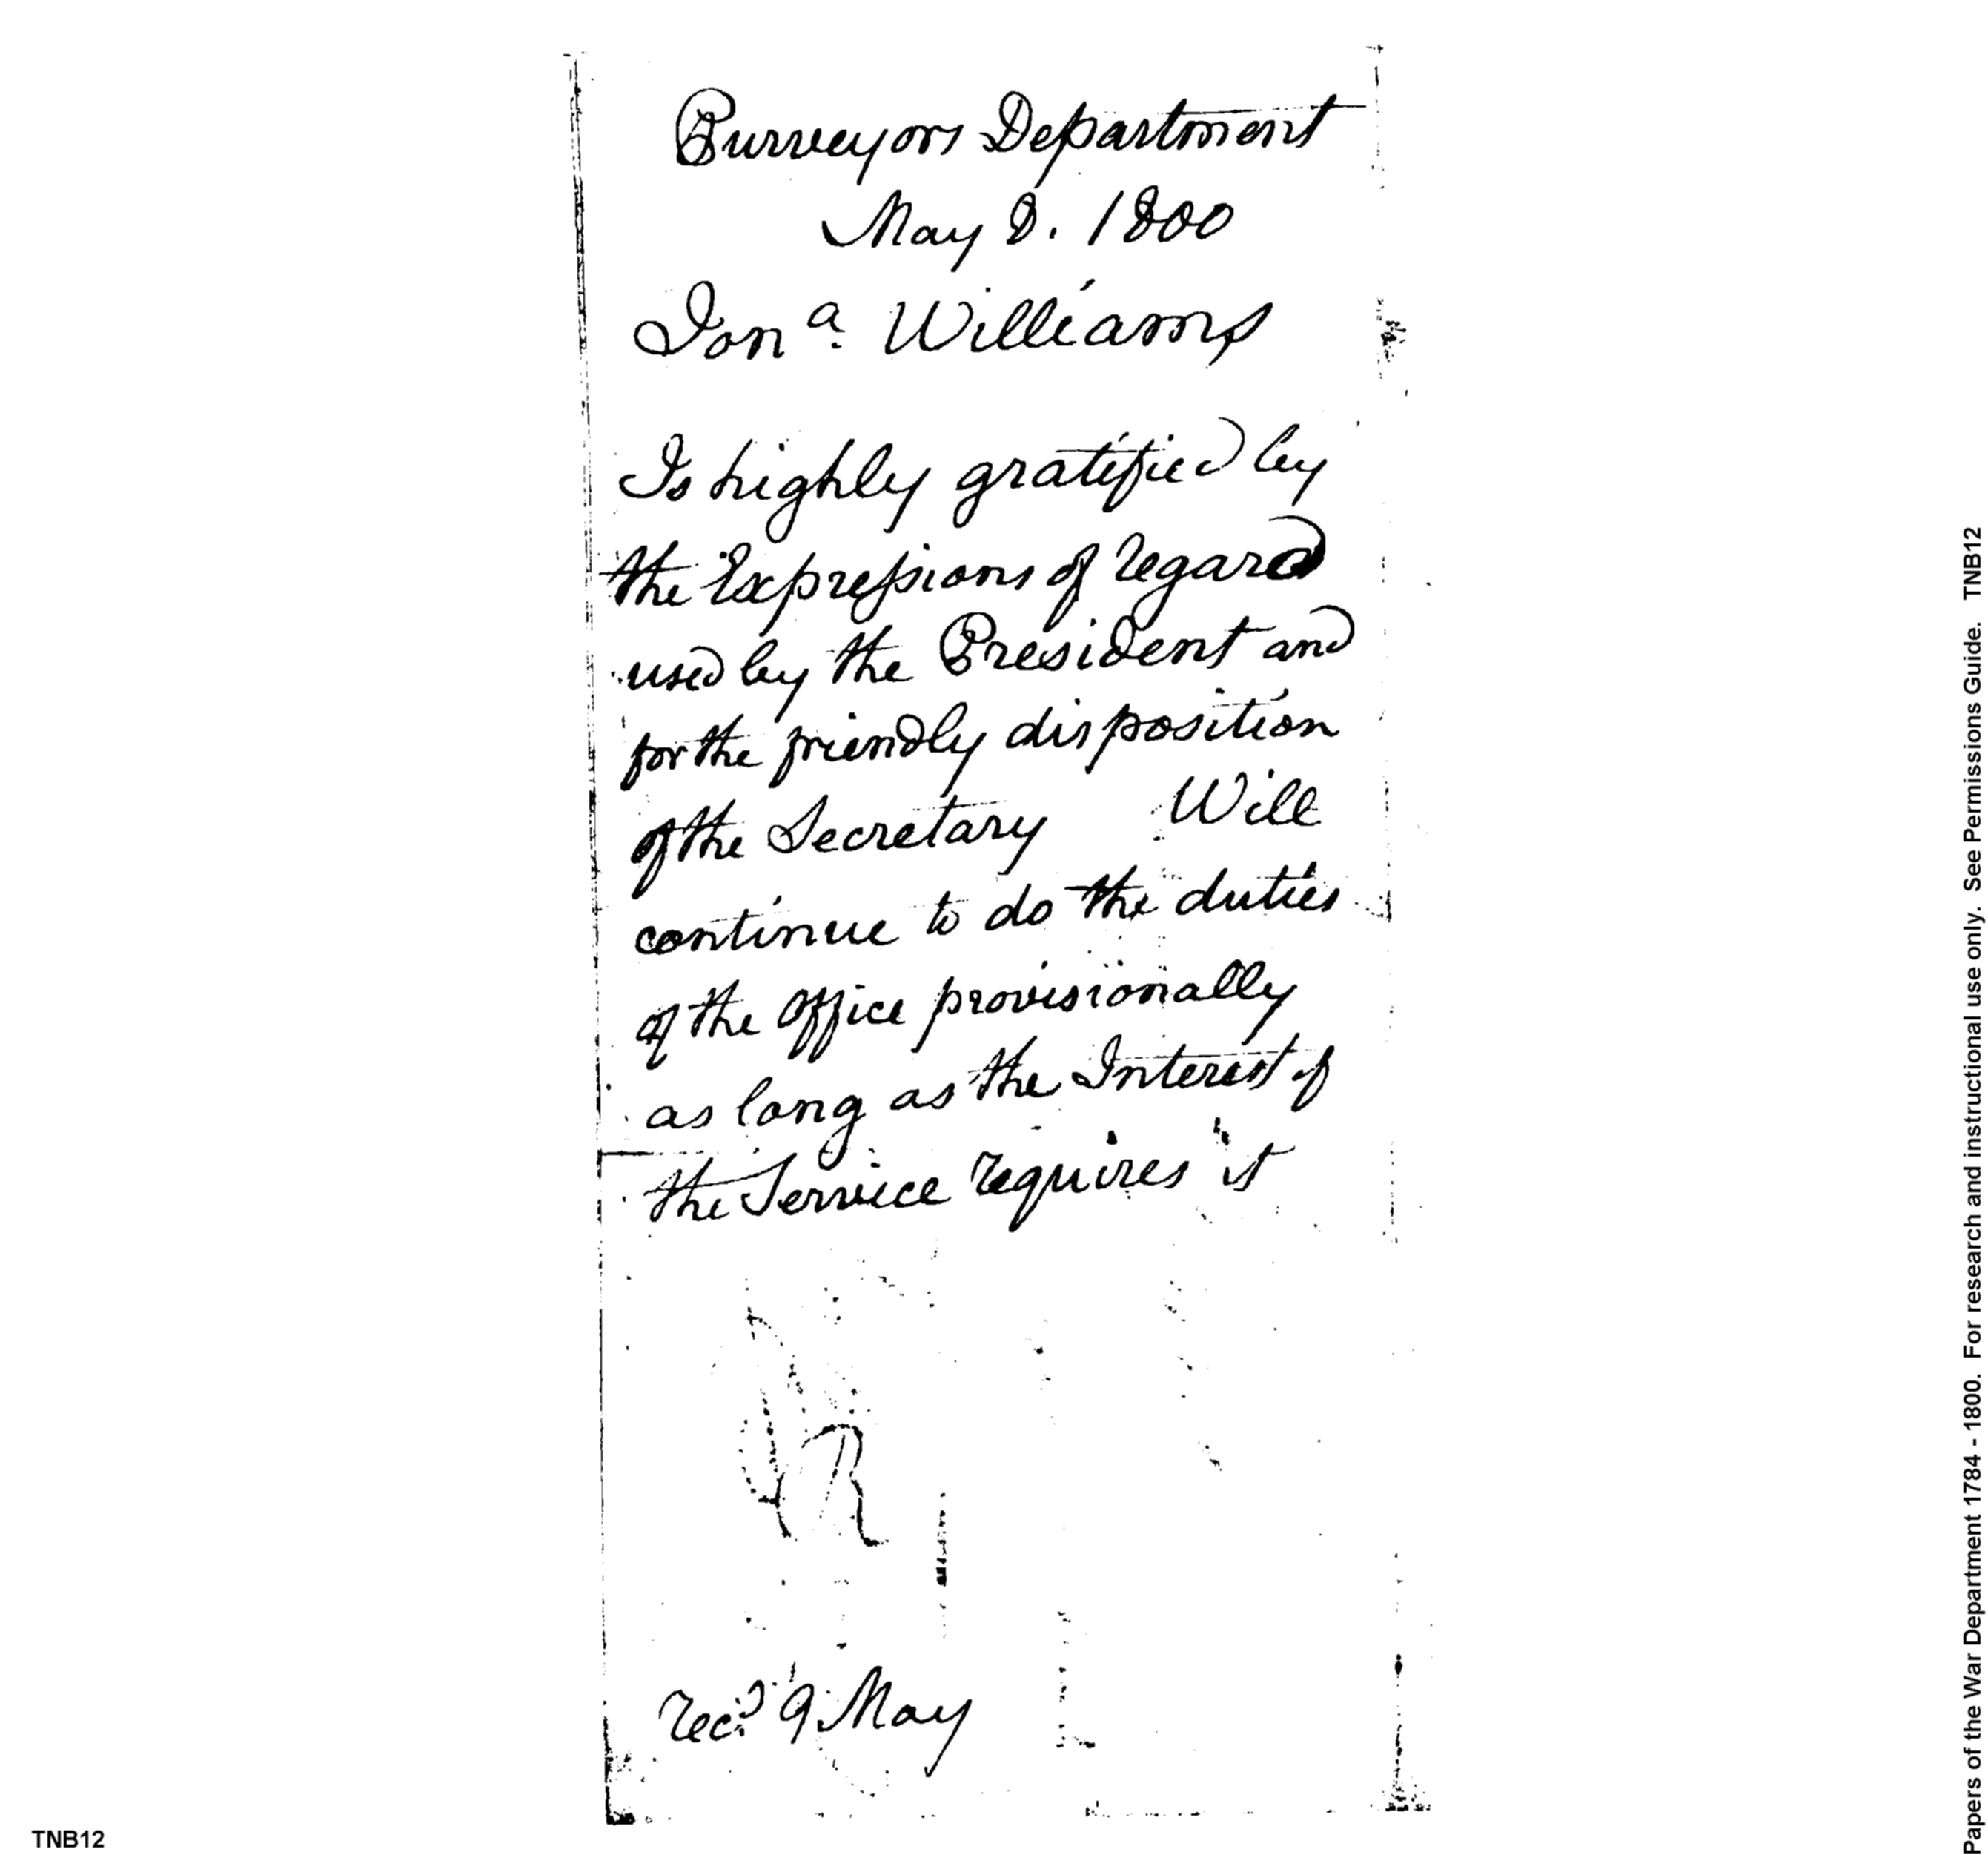 Purveyors Department
May 8. 1800
Jonª. Williams
Is highly gratified by
the Expressions of regard
used by the President and
for the friendly disposition
of the Secretary Will
continue to do the duties
of the Office provisionally
as long as the Interest of
the Service requires it
R
recd. 9 May
TNB12
Papers of the War Department 1784 - 1800. For research and instructional use only. See Permissions Guide. TNB12